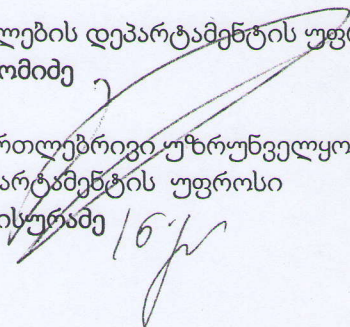 ლების დეპარტამენტის უფრ
ომიძე
რთლებრივი უზრუნველყო
არტამენტის უფროსი
ისურაძე